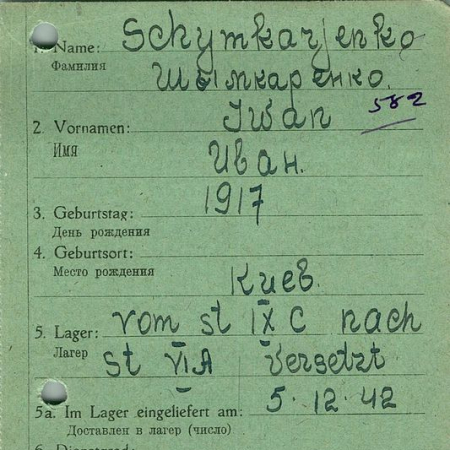 1. Name: Schymkarjenko
Фамилия Шымкаренко.
582
2. Vornamen: Iwan
Имя Иван.
1917
3. Geburtstag:
День рождения
4. Geburtsort:
Место рождения Киев.
5. Lager: vom st IX C nach
Лагерь st VI A versetzt
5a. Im Lager eingeliefert am: 5.12.42
Доставлен в лагерь (число)